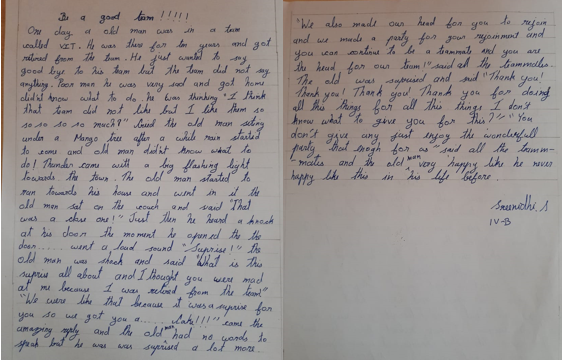 Be a good team !!!!!
One day a old man was in a team
called VIT. He was there for ten years and got
retired from the team. He just wanted to say
good bye to his team but the team did not say
anything. Poor man he was very sad and got home
didn't know what to do. he was thinking "I think
that team did not like but I like them so
so so so so much?" Cried the old man sitting
under a Mango tree after a while rain started
to come and old man didn't know what to
do! Thunder came with a big flashing light
towards the town. The old man started to
run towards his house and went in it the
old man sat on the couch and said "That
was a close one!" Just then he heard a knock
at his door the moment he opened the the
door...... went a loud sound "Suprise!" the
old man was shock and said "What is this
suprise all about and I thought you were mad
at me because I was retired from the team?"
"We were like that because it was a suprise for
you so we got you a ...... cake!!!" came the
amazing reply and the old man had no words to
speak but he was was suprised a lot more.
"We also made our head for you to rejoin
and we made a party for your rejoinment and
you can continue to be a teammate and you are
the head for our team" said all the teammates.
The old was suprised and said "Thank you!
Thank you! Thank you! Thank you for doing
all this things for all this things I don't
know what to give you for this?" "You
don't give any just enjoy the wonderfull
party that enogh for us" said all the team-
mates and the old man very happy like he never
happy like this in his life before.
Sreenidhi. S
IV-B